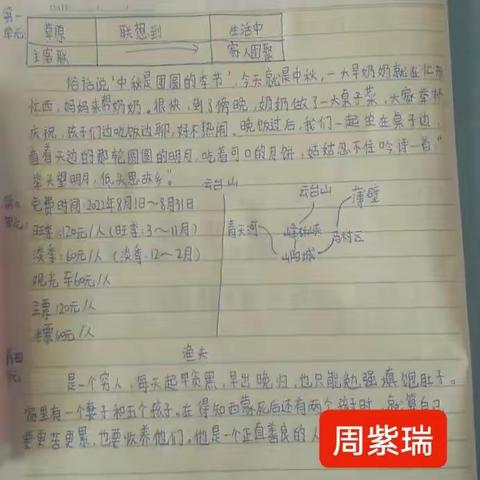 第一单元
草原 联想到 生活中
主客联 家人团聚
俗话说"中秋是团圆的季节",今天就是中秋,一大早奶奶就在忙东
忙西,妈妈来帮奶奶。很快,到了傍晚,奶奶做了一大桌子菜,大家举杯
庆祝,孩子们边吃饭边聊,好不热闹。晚饭过后,我们一起坐在桌子边,
查看天边的那轮圆圆的明月,吃着可口的月饼,姑姑忍不住吟诗一首"
举头望明月,低头思故乡"
云台山
免费时间:2022年8月1日~8月31日
旺季:120元/人(旺季:3~11月)
淡季:60元/人(淡季:12~2月)
观光车60元/人
120元/人
60元/人
云台山
薄壁
青天河
马村区
渔夫
是一个穷人,每天起早贪黑,早出晚归,也只能勉强填饱肚子。
家里有一个妻子和五个孩子。在得知西蒙死后还有两个孩子时,就算自己
要更苦更累,也要收养他们,他是一个正直善良的人
周紫瑞